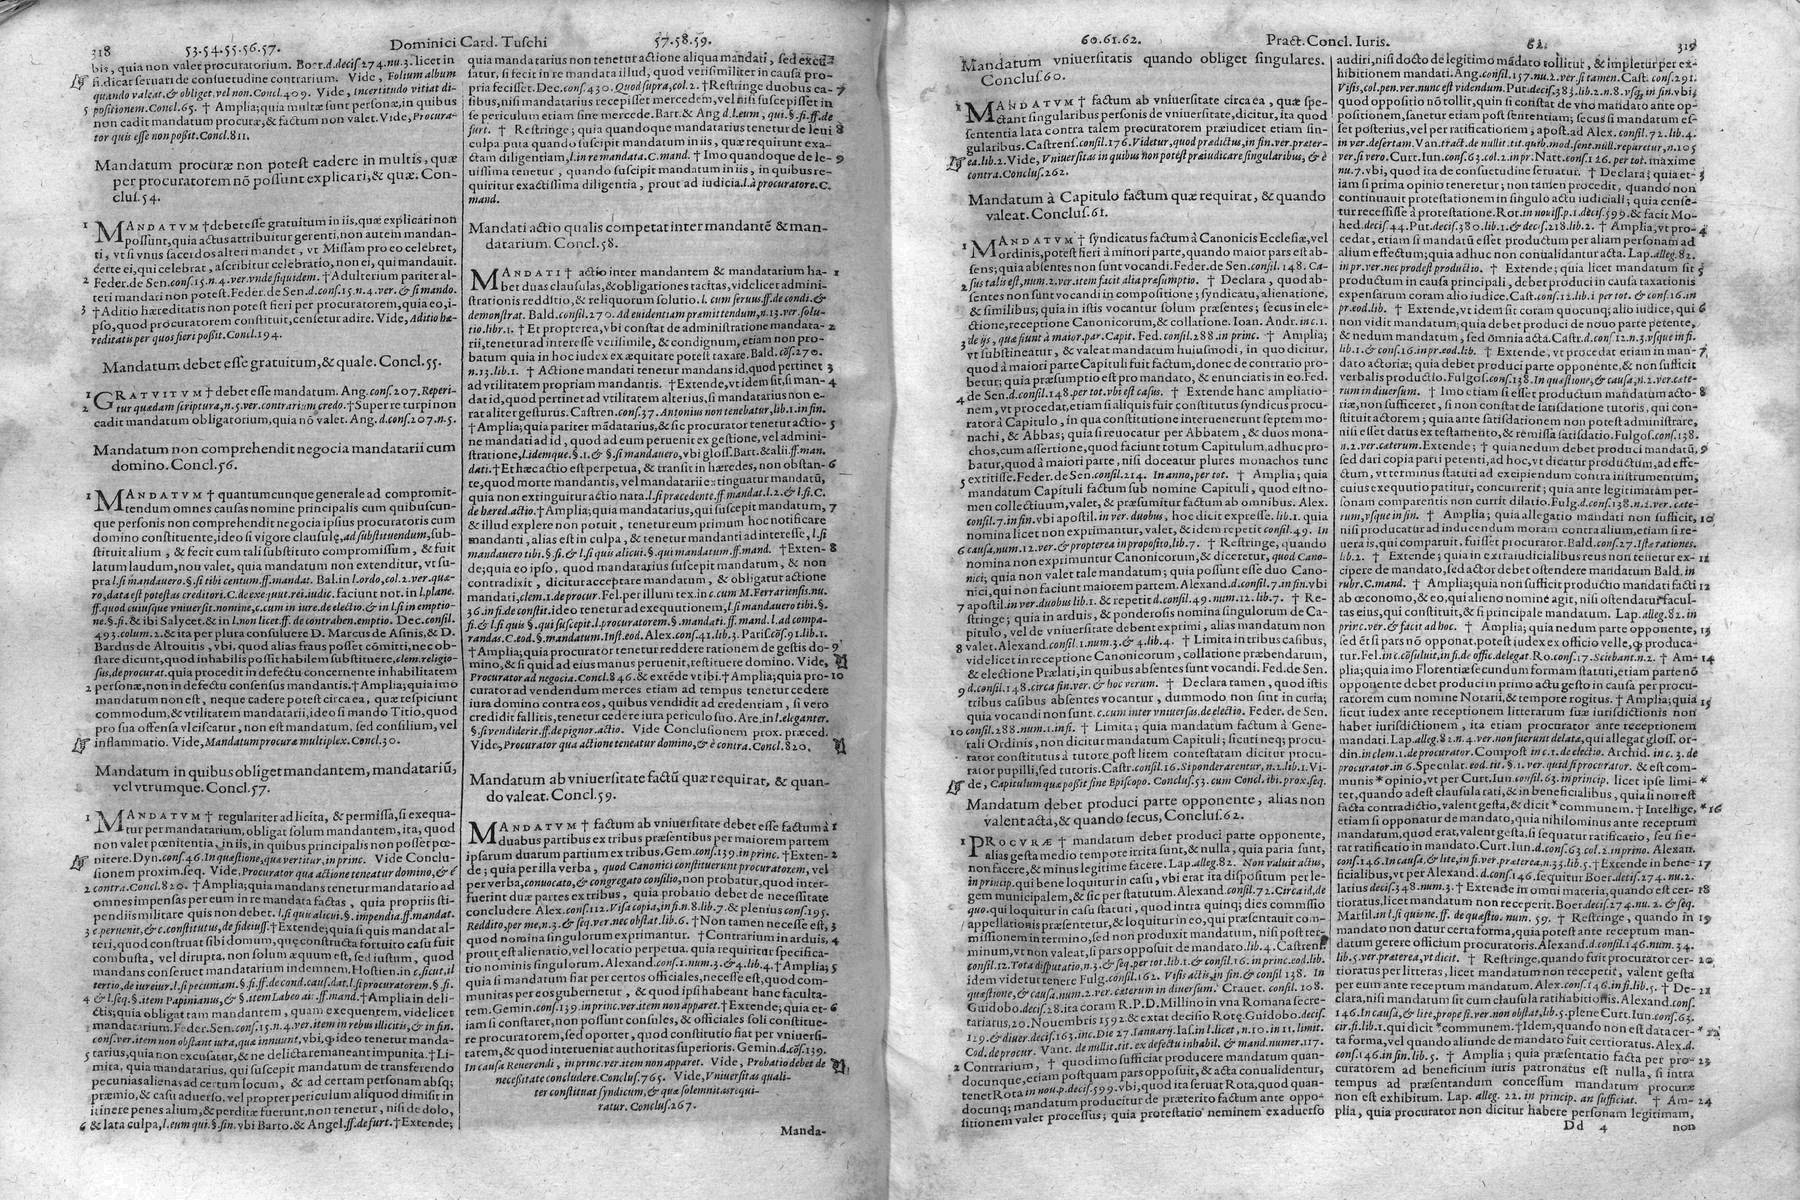 318 53.54.55.56.57. Dominici Card. Tuschi 57.58.59.
bis, quia non valet procuratorium. Boer.d.decis.274.nu.3. licet in
si.dicat seruari de consuetudine contrarium. Vide, Folium album
quando valeat.& obliget.vel non.Concl.409. Vide, Incertitudo vitiat di-
5 positionem.Concl.65. † Amplia;quia multæ sunt personæ,in quibus
non cadit mandatum procuræ,& factum non valet. Vide,Procura-
tor quis esse non possit.Concl.811.
Mandatum procuræ non potest cadere in multis, quæ
per procuratorem nõ possunt explicari,& quæ. Con-
clus.54.
1 MANDATVM † debet esse gratuitum in iis,quæ explicari non
possunt,quia actus attribuitur gerenti,non autem mandan-
ti, vt si vnus sacerdos alteri mandet, vt Missam pro eo celebret,
certe ei,qui celebrat, ascribitur celebratio,non ei, qui mandauit.
2 Feder.de Sen.cons.15.n.4.ver.vnde siquidem. †Adulterium pariter al-
teri mandari non potest.Feder.de Sen.d.cons.15.n.4.ver. & si mando.
3 †Aditio hæreditatis non potest fieri per procuratorem,quia eo,i-
pso,quod procuratorem constituit,censetur adire. Vide,Aditio hæ-
reditatis per quos fieri possit.Concl.194.
Mandatum debet esse gratuitum,& quale. Concl.55.
1 GRATVITVM † debet esse mandatum. Ang.cons.207.Reperi-
2 tur quædam scriptura,n.5.ver.contrarium credo.†Super re turpi non
cadit mandatum obligatorium,quia nõ valet. Ang.d.cons.207.n.5.
Mandatum non comprehendit negocia mandatarii cum
domino. Concl.56.
1 MANDATVM † quantumcunque generale ad compromit-
tendum omnes causas nomine principalis cum quibuscun-
que personis non comprehendit negocia ipsius procuratoris cum
domino constituente,ideo si vigore clausulę,ad substituendum,sub-
stituit alium , & fecit cum tali substituto compromissum, & fuit
latum laudum,nou valet, quia mandatum non extenditur, vt su-
pra l.si mandauero.§.si tibi centum.ff.mandat. Bal.in l.ordo,col.2.ver.quæ-
ro,data est potestas creditori.C.de exequut.rei iudic. faciunt not. in l.plane.
ff.quod cuiusque vniuersit.nomine,c.cum in iure.de electio.& in l.si in emptio-
ne.§.fi.& ibi Salycet.& in l.non licet.ff.de contrahen.emptio. Dec.consil.
493.colum.2.& ita per plura consuluere D. Marcus de Asinis,& D.
Bardus de Altouitis , vbi, quod alias fraus posset cõmitti,nec ob-
stare dicunt,quod inhabilis possit habilem substituere,clem.religio-
sus,de procurat.quia procedit in defectu concernente inhabilitatem
2 personæ,non in defectu consensus mandantis.†Amplia;quia imo
mandatum non est, neque cadere potest circa ea, quæ respiciunt
commodum,& vtilitatem mandatarii,ideo si mando Titio,quod
pro sua offensa vlciscatur, non est mandatum, sed consilium, vel
inflammatio. Vide,Mandatum procuræ multiplex.Concl.30.
Mandatum in quibus obliget mandantem, mandatariũ,
vel vtrumque. Concl.57.
1 MANDATVM † regulariter ad licita, & permissa,si exequa-
tur per mandatarium,obligat solum mandantem,ita, quod
non valet pœnitentia,in iis,in quibus principalis non posset pœ-
nitere.Dyn.cons.46.In quæstione,quæ vertitur,in princ. Vide Conclu-
sionem proxim.seq. Vide,Procurator qua actione teneatur domino,& è
2 contra.Concl.820. †Amplia;quia mandans tenetur mandatario ad
omnes impensas per eum in re mandata factas , quia propriis sti-
pendiis militare quis non debet. l.si quis alicui.§.impendia.ff.mandat.
3 c.peruenit,& c.constitutus,de fideiuss.†Extende;quia si quis mandat al-
teri,quod construat sibi domum,quę constructa fortuito casu fuit
combusta, vel dirupta, non solum æquum est, sed iustum, quod
mandans conseruet mandatarium indemnem.Hostien.in c.sicut,il
tertio,de iureiur.l.si pecuniam.§.si.ff.de cond.cau.dat.l.si procuratorem.§.fi.
4 & l.seq.§.item Papinianus,& §.item Labeo ai: .ff.mand.†Amplia in deli-
ctis;quia obligat tam mandantem, quam exequentem, videlicet
mandatarium.Feder.Sen.cons.15.n.4.ver.item in rebus illicitis,& in fin.
cons.ver.item non obstant iura,quæ innuunt,vbi,ꝙ ideo tenetur manda-
5 tarius,quia non excusatur,& ne delicta remaneant impunita.†Li-
mita, quia mandatarius, qui suscepit mandatum de transferendo
pecunias alienas ad certum locum, & ad certam personam absq;
præmio,& casu aduerso, vel propter periculum aliquod dimisit in
itinere penes alium,& perditæ fuerunt,non tenetur , nisi de dolo,
6 & lata culpa,l.eum qui.§.sin.vbi Barto.& Angel.ff.de furt.†Extende;
quia mandatarius non tenetur actione aliqua mandati, sed excu-
satur, si fecit in re mandata illud, quod verisimiliter in causa pro-
pria fecisset. Dec.cons.430.Quod supra,col.2.†Restringe duobus ca- 7
sibus,nisi mandatarius recepisset mercedem,vel nisi suscepisset in
se periculum etiam sine mercede. Bart.& Ang d.l.eum, qui.§.fi.ff.de
furt. † Restringe; quia quandoque mandatarius tenetur de leui 8
culpa puta quando suscipit mandatum in iis, quæ requirunt exa-
ctam diligentiam,l.in re mandata.C.mand. † Imo quandoque de le- 9
uissima tenetur , quando suscipit mandatum in iis , in quibus re-
quiritur exactissima diligentia , prout ad iudicia.l.à procuratore.C.
mand.
Mandati actio qualis competat inter mandantẽ & man-
datarium. Concl.58.
MANDATI † actio inter mandantem & mandatarium ha- 1
bet duas clausulas,&obligationes tacitas,videlicet admini-
strationis redditio,& reliquorum solutio.l. cum seruus.ff.de condi.&
demonstrat. Bald.consil.270.Ad euidentiam præmittendum,n.13.ver.solu-
tio.libr.1. † Et propterea,vbi constat de administratione mandata- 2
rii,tenetur ad interesse verisimile,& condignum,etiam non pro-
batum quia in hoc iudex ex æquitate potest taxare. Bald. cõs.270.
n.13.lib.1. † Actione mandati tenetur mandans id,quod pertinet 3
ad vtilitatem propriam mandantis. †Extende,vt idem sit,si man- 4
dat id,quod pertinet ad vtilitatem alterius,si mandatarius non e-
rat aliter gesturus. Castren.cons.37.Antonius non tenebatur,lib.1.in fin.
†Amplia;quia pariter mãdatarius,& sic procurator tenetur actio- 5
ne mandati ad id, quod ad eum peruenit ex gestione, vel admini-
stratione,l.idemque.§.1.& §.si mandauero,vbi gloss.Bart.&alii.ff.man.
dati.†Et hæc actio est perpetua, & transit in hæredes,non obstan- 6
te,quod morte mandantis, vel mandatarii extinguatur mandatũ,
quia non extinguitur actio nata.l.si præcedente.ff.mandat.l.2.& l.si.C.
de hæred.actio.†Amplia;quia mandatarius,qui suscepit mandatum, 7
& illud explere non potuit , tenetur eum primum hoc notificare
mandanti , alias est in culpa , & tenetur mandanti ad interesse, l.si
mandauero tibi.§.fi.& l.si quis alicui.§.qui mandatum.ff.mand. †Exten- 8
de;quia eo ipso, quod mandatarius suscepit mandatum, & non
contradixit , dicitur acceptare mandatum , & obligatur actione
mandati,clem.1.de procur.Fel.per illum tex.in c.cum M.Ferrariensis.nu.
36.in fi.de constit.ideo tenetur ad exequutionem,l.si mandauero tibi.§.
fi.& l.si quis §.qui suscepit.l.procuratorem.§.mandati.ff.mand.l.ad compa-
randas.C.eod.§.mandatum.Inst.eod. Alex.cons.41.lib.3. Paris.cõs.91.lib.1.
†Amplia;quia procurator tenetur reddere rationem de gestis do- 9
mino,& si quid ad eius manus peruenit,restituere domino. Vide,
Procurator ad negocia.Concl.846. & extẽde vt ibi.†Amplia;quia pro- 10
curator ad vendendum merces etiam ad tempus tenetur cedere
iura domino contra eos , quibus vendidit ad credentiam , si vero
credidit fallitis,tenetur cedere iura periculo suo. Are.in l.eleganter.
§.si vendiderit.ff.de pignor.actio. Vide Conclusionem prox. præced.
Vide,Procurator qua actione teneatur domino,& è contra.Concl.820.
Mandatum ab vniuersitate factũ quæ requirat, & quan-
do valeat. Concl.59.
MANDATVM † factum ab vniuersitate debet esse factum à 1
duabus partibus ex tribus præsentibus per maiorem partem
ipsarum duatum partium ex tribus.Gem.cons.139.in princ.†Exten- 2
de ; quia per illa verba , quod Canonici constituerunt procuratorem, vel
per verba,conuocato,& congregato consilio,non probatur, quod inter-
fuerint duæ partes ex tribus , quia probatio debet de necessitate
concludere Alex.cons.112.Visa copia,in fi.n.8.lib.7.& plenius cons.195.
Reddito,per me,n.3.& seq.ver.nec obstat.lib.6. †Non tamen necesse est, 3
quod nomina singulorum exprimantur. †Contrarium in arduis, 4
prout est alienatio,vel locatio perpetua. quia requiritur specifica-
tio nominis singulorum. Alexand.cons.1.num.3.& 4.lib.4.†Amplia; 5
quia si mandatum fiat per certos officiales,necesse est, quod com-
munitas per eos gubernetur , & quod ipsi habeant hanc faculta-
tem.Gemin.cons.139.in princ.ver.item non apparet.†Extende;quia et- 6
iam si constaret,non possunt consules, & officiales soli constitue-
re procuratorem,sed oportet , quod constitutio fiat per vniuersi-
tatem,& quod interueniat authoritas superioris. Gemin.d.cõs.139.
In causa Reuerendi , in princ.ver.item non apparet. Vide , Probatio debet de
necessitate concludere.Conclus.765. Vide,Vniuersitas quali-
ter constituat syndicum,& quæ solemnitas requi-
ratur. Conclus.267.
Manda-
60.61.62. Pract. Concl. Iuris. 62. 319
Mandatum vniuersitatis quando obliget singulares.
Conclus.60.
1 MANDATVM † factum ab vniuersitate circa ea , quæ spe-
ctant singularibus personis de vniuersitate,dicitur,ita quod
sententia lata contra talem procuratorem præiudicet etiam sin-
gularibus.Castrens.consil.176.Videtur, quod prædictus,in fin.ver.præter-
ea.lib.2. Vide, Vniuersitas in quibus non potest præiudicare singularibus, & è
contra.Conclus.262.
Mandatum à Capitulo factum quæ requirat, & quando
valeat. Conclus.61.
1 MANDATVM † syndicatus factum à Canonicis Ecclesiæ,vel
ordinis,potest fieri à minori parte, quando maior pars est ab-
sens; quia absentes non sunt vocandi. Feder.de Sen.consil. 148. Ca-
2 sus talis est,num.2.ver.item facit alia præsumptio. † Declara , quod ab-
sentes non sunt vocandi in compositione ; syndicatu, alienatione,
& similibus; quia in istis vocantur solum præsentes; secus in ele-
ctione,receptione Canonicorum,& collatione. Ioan. Andr. in c.1.
3 de ijs, quæ fiunt à maior.par.Capit. Fed.consil.288.in princ. † Amplia;
vt substineatur , & valeat mandatum huiusmodi , in quo dicitur,
quod à maiori parte Capituli fuit factum, donec de contrario pro-
betur; quia præsumptio est pro mandato, & enunciatis in eo. Fed.
4 de Sen.d.consil.148.per tot.vbi est casus. † Extende hanc ampliatio-
nem , vt procedat,etiam si aliquis fuit constitutus syndicus procu-
rator à Capitulo , in qua constitutione interuenerunt septem mo-
nachi, & Abbas; quia si reuocatur per Abbatem , & duos mona-
chos,cum assertione,quod faciunt totum Capitulum,adhuc pro-
batur,quod à maiori parte , nisi doceatur plures monachos tunc
5 extitisse.Feder.de Sen.consil.214. In anno,per tot. † Amplia ; quia
mandatum Capituli factum sub nomine Capituli , quod est no-
men collectiuum, valet, & præsumitur factum ab omnibus. Alex.
consil.7.in fin.vbi apostil. in ver.duobus , hoc dicit expresse. lib.1. quia
nomina licet non exprimantur,valet, & idem reperit consil.49. In
6 causa,num.12.ver.& propterea in proposito,lib.7. † Restringe, quando
nomina non exprimuntur Canonicorum,& diceretur, quod Cano-
nici; quia non valet tale mandatum; quia possunt esse duo Cano-
nici, qui non faciunt maiorem partem. Alexand.d.consil.7.in fin.vbi
7 apostil.in ver.duobus lib.1. & repetit d.consil.49. num.12.lib.7. † Re-
stringe; quia in arduis , & ponderosis nomina singulorum de Ca-
pitulo, vel de vniuersitate debent exprimi , alias mandatum non
8 valet.Alexand.consil.1.num.3.& 4.lib.4. † Limita in tribus casibus,
videlicet in receptione Canonicorum , collatione præbendarum,
& electione Prælati,in quibus absentes sunt vocandi. Fed.de Sen.
9 d.consil.148.circa fin.ver. & hoc verum. † Declara tamen , quod istis
tribus casibus absentes vocantur , dummodo non sint in curia;
quia vocandi non sunt.c.cum inter vniuersas.de electio. Feder. de Sen.
10 consil.288.num.1.in fi. † Limita ; quia mandatum factum à Gene-
rali Ordinis , non dicitur mandatum Capituli ; sicuti neq; procu-
rator constitutus à tutore post litem contestatam dicitur procu-
rator pupilli,sed tutoris. Castr.consil.16.Si ponderarentur,n.2.lib.1. Vi-
de, Capitulum quæ possit sine Episcopo. Conclus.53.cum Concl.ibi.prox.seq.
Mandatum debet produci parte opponente, alias non
valent acta,& quando secus, Conclus.62.
1 PROCVRÆ † mandatum debet produci parte opponente,
alias gesta medio tempore irrita sunt,& nulla , quia paria sunt,
non facere,& minus legitime facere. Lap.alleg.82. Non valuit actus,
in princip.qui bene loquitur in casu , vbi erat ita dispositum per le-
gem municipalem,& sic per statutum. Alexand.consil.72.Circa id,de
quo. qui loquitur in casu statuti, quod intra quinq; dies commissio
appellationis præsentetur,& loquitur in eo,qui præsentauit com-
missionem in termino,sed non produxit mandatum, nisi post ter-
minum,vt non valeat,si pars opposuit de mandato.lib.4. Castrens.
consil.12.Tota disputatio,n.3.& seq.per tot.lib.1.& consil.16.in princ.eod.lib.
idem videtur tenere Fulg.consil.162. Visis actis,in fin.& consil 138. In
quæstione,& causa,num.2.ver.caterum in diuersum. Crauet. consil.108.
Guidobo.decis.28.ita coram R.P.D.Millino in vna Romana secre-
tariatus,20.Nouembris 1592.& extat decisio Rotę.Guidobo.decis.
129.& diuer.decis.163.inc.Die 27.Ianuarij.Ias.in l.licet , n.10. in 11.limit.
Cod.de procur. Vant. de nullit.tit.ex defectu inhabil. & mand.numer.117.
2 Contrarium , † quod imo sufficiat producere mandatum quan-
documque,etiam postquam pars opposuit , & acta conualidentur,
tenet Rota in nou.p.decis.599.vbi,quod ita seruat Rota,quod quan-
docunq; mandatum producitur de præterito factum ante oppo-
sitionem valet processus; quia protestatio neminem ex aduerso
audiri,nisi docto de legitimo mãdato tollitur , & impletur per ex-
hibitionem mandati. Ang.consil.157.nu.2.ver.si tamen. Cast. cons.291.
Visis,col.pen.ver.nunc est videndum.Put.decis.383.lib.2.n.8.vsq; in fin.vbi;
quod oppositio nõ tollit,quin si constat de vno mandato ante op-
positionem,sanetur etiam post sententiam; secus si mandatum es-
set posterius,vel per ratificationem , apost.ad Alex.consil.72.lib.4.
in ver.desertam. Van.tract.de nullit.tit.quib.mod.sent.null.reparetur,n.105
ver.si vero. Curt.Iun.cons.63.col.2.in pr. Natt.cons.126.per tot. maxime
nu.7.vbi, quod ita de consuetudine seruatur. † Declara ; quia et- 3
iam si prima opinio teneretur; non tamen procedit, quando non
continuauit protestationem in singulo actu iudiciali ; quia cense-
tur recessisse à protestatione.Rot.in nouiss.p.1.decis.599.& facit Mo-
hed.decis.44.Put.decis.380.lib.1.& decis.218.lib.2. † Amplia,vt pro- 4
cedat , etiam si mandatũ esset productum per aliam personam ad
alium effectum;quia adhuc non conualidantur acta. Lap.alleg.82.
in pr.ver.nec prodest productio. † Extende; quia licet mandatum sit 5
productum in causa principali , debet produci in causa taxationis
expensarum coram alio iudice. Cast.cons.12.lib.1 per tot. & cons.16.in
pr.eod.lib. † Extende,vt idem sit coram quocunq; alio iudice, qui 6
non vidit mandatum; quia debet produci de nouo parte petente,
& nedum mandatum, sed omnia acta. Castr.d.cons.12.n.3.vsque in fi.
lib.1.& cons.16.in pr.eod.lib. † Extende, vt procedat etiam in man- 7
dato actoriæ ; quia debet produci parte opponente,& non sufficit
verbalis productio. Fulgos.cons.138.In quæstione,& causa,n.2.ver.cæte-
rum in diuersum. † Imo etiam si esset productum mandatum acto- 8
riæ,non sufficeret, si non constat de satisdatione tutoris, qui con-
stituit actorem ; quia ante satisdationem non potest administrare,
nisi esset datus ex testamento,& remissa satisdatio.Fulgos.cons.138.
n.2.ver.cæterum.Extende ; † quia nedum debet produci mandatũ, 9
sed dari copia parti petenti,ad hoc, vt dicatur productum,ad effe-
ctum, vt terminus statuti ad excipiendum contra instrumentum,
cuius exequutio patitur, concurrerit ; quia ante legitimatam per-
sonam comparentis non currit dilatio. Fulg.d.cons.138.n.2.ver.cæte-
rum,vsque in fin. † Amplia ; quia allegatio mandati non sufficit, 10
nisi producatur ad inducendum moram contra alium,etiam si re-
nera is,qui comparuit, fuisset procurator. Bald.cons.27.Istæ rationes.
lib.2. † Extende ; quia in extraiudicialibus reus non tenetur ex- 11
cipere de mandato, sed actor debet ostendere mandatum Bald.in
rubr.C.mand. † Amplia;quia non sufficit productio mandati facti 12
ab œconomo,& eo,qui alieno nomine agit, nisi ostendatur facul-
tas eius,qui constituit,& si principale mandatum. Lap.alleg.82.in
princ.ver.& facit ad hoc. † Amplia; quia nedum parte opponente, 13
sed ẽt si pars nõ opponat,potest iudex ex officio velle,ꝙ produca-
tur.Fel.in c.cõsuluit,in fi.de offic.delegat.Ro.cons.17.Sciebant.n.2. † Am- 14
plia;quia imo Florentiæ secundum formam statuti,etiam parte nõ
opponente debet produci in primo actu gesto in causa per procu-
ratorem cum nomine Notarii,& tempore rogitus. † Amplia;quia 15
sicut iudex ante receptionem litterarum suæ iurisdictionis non
habet iurisdictionem , ita etiam procurator ante receptionem
mandati. Lap.alleg.82.n.4.ver.non fuerunt delatæ,qui allegat gloss. or-
din.in clem.1.de procurator. Compost in c.1.de electio. Archid. in c.3. de
procurator.in 6.Speculat.eod.tit.§.1.ver.quid si procurator. & est com-
munis * opinio, vt per Curt.Iun.consil.63.in princip. licet ipse limi-
tet,quando adest clausula rati,& in beneficialibus, quia si non est
facta contradictio, valent gesta,& dicit * communem. † Intellige, * 16
etiam si opponatur de mandato, quia nihilominus ante receptum
mandatum,quod erat,valent gesta,si sequatur ratificatio , seu si e-
rat ratificatio in mandato. Curt.Iun.d.cons.63.col.2.in prino. Alexan.
cons.146.In causa,& lite,in fi.ver.præterea,n.33.lib.5.†Extende in bene- 17
ficialibus,vt per Alexand.d.cons.146.sequitur Boer.decis.274.nu.2.
latius decis.348.num.3. † Extende in omni materia,quando est cer- 18
tioratus,licet mandatum non receperit. Boer.decis.274.nu.2. & seq.
Marsil.in l.si quis ne.ff.de quæstio. num. 59. † Restringe, quando in 19
mandato non datur certa forma,quia potest ante receptum man-
datum gerere officium procuratoris. Alexand.d.consil.146.num.34.
lib.5.ver.præterea,vt dicit. † Restringe,quando fuit procurator cer- 20
tioratus per litteras, licet mandatum non receperit, valent gesta
per eum ante receptum mandatum. Alex.cons.146.in fi.lib.5. † De- 21
clara,nisi mandatum sit cum clausula ratihabitionis. Alexand.cons.
146.In causa,& lite,prope fi.ver.non obstat,lib.5.plene Curt.Iun.cons.63.
cir.fi.lib.1.qui dicit *communem. †Idem,quando non est data cer- * 22
ta forma,vel quando aliunde de mandato fuit certioratus.Alex.d.
cons.146.in fin.lib.5. † Amplia ; quia præsentatio facta per pro- 23
curatorem ad beneficium iuris patronatus est nulla, si intra
tempus ad præsentandum concessum mandatum procuræ
non est exhibitum. Lap. alleg. 22. in princip. an sufficiat. † Am- 24
plia , quia procurator non dicitur habere personam legitimam,
Dd 4 non